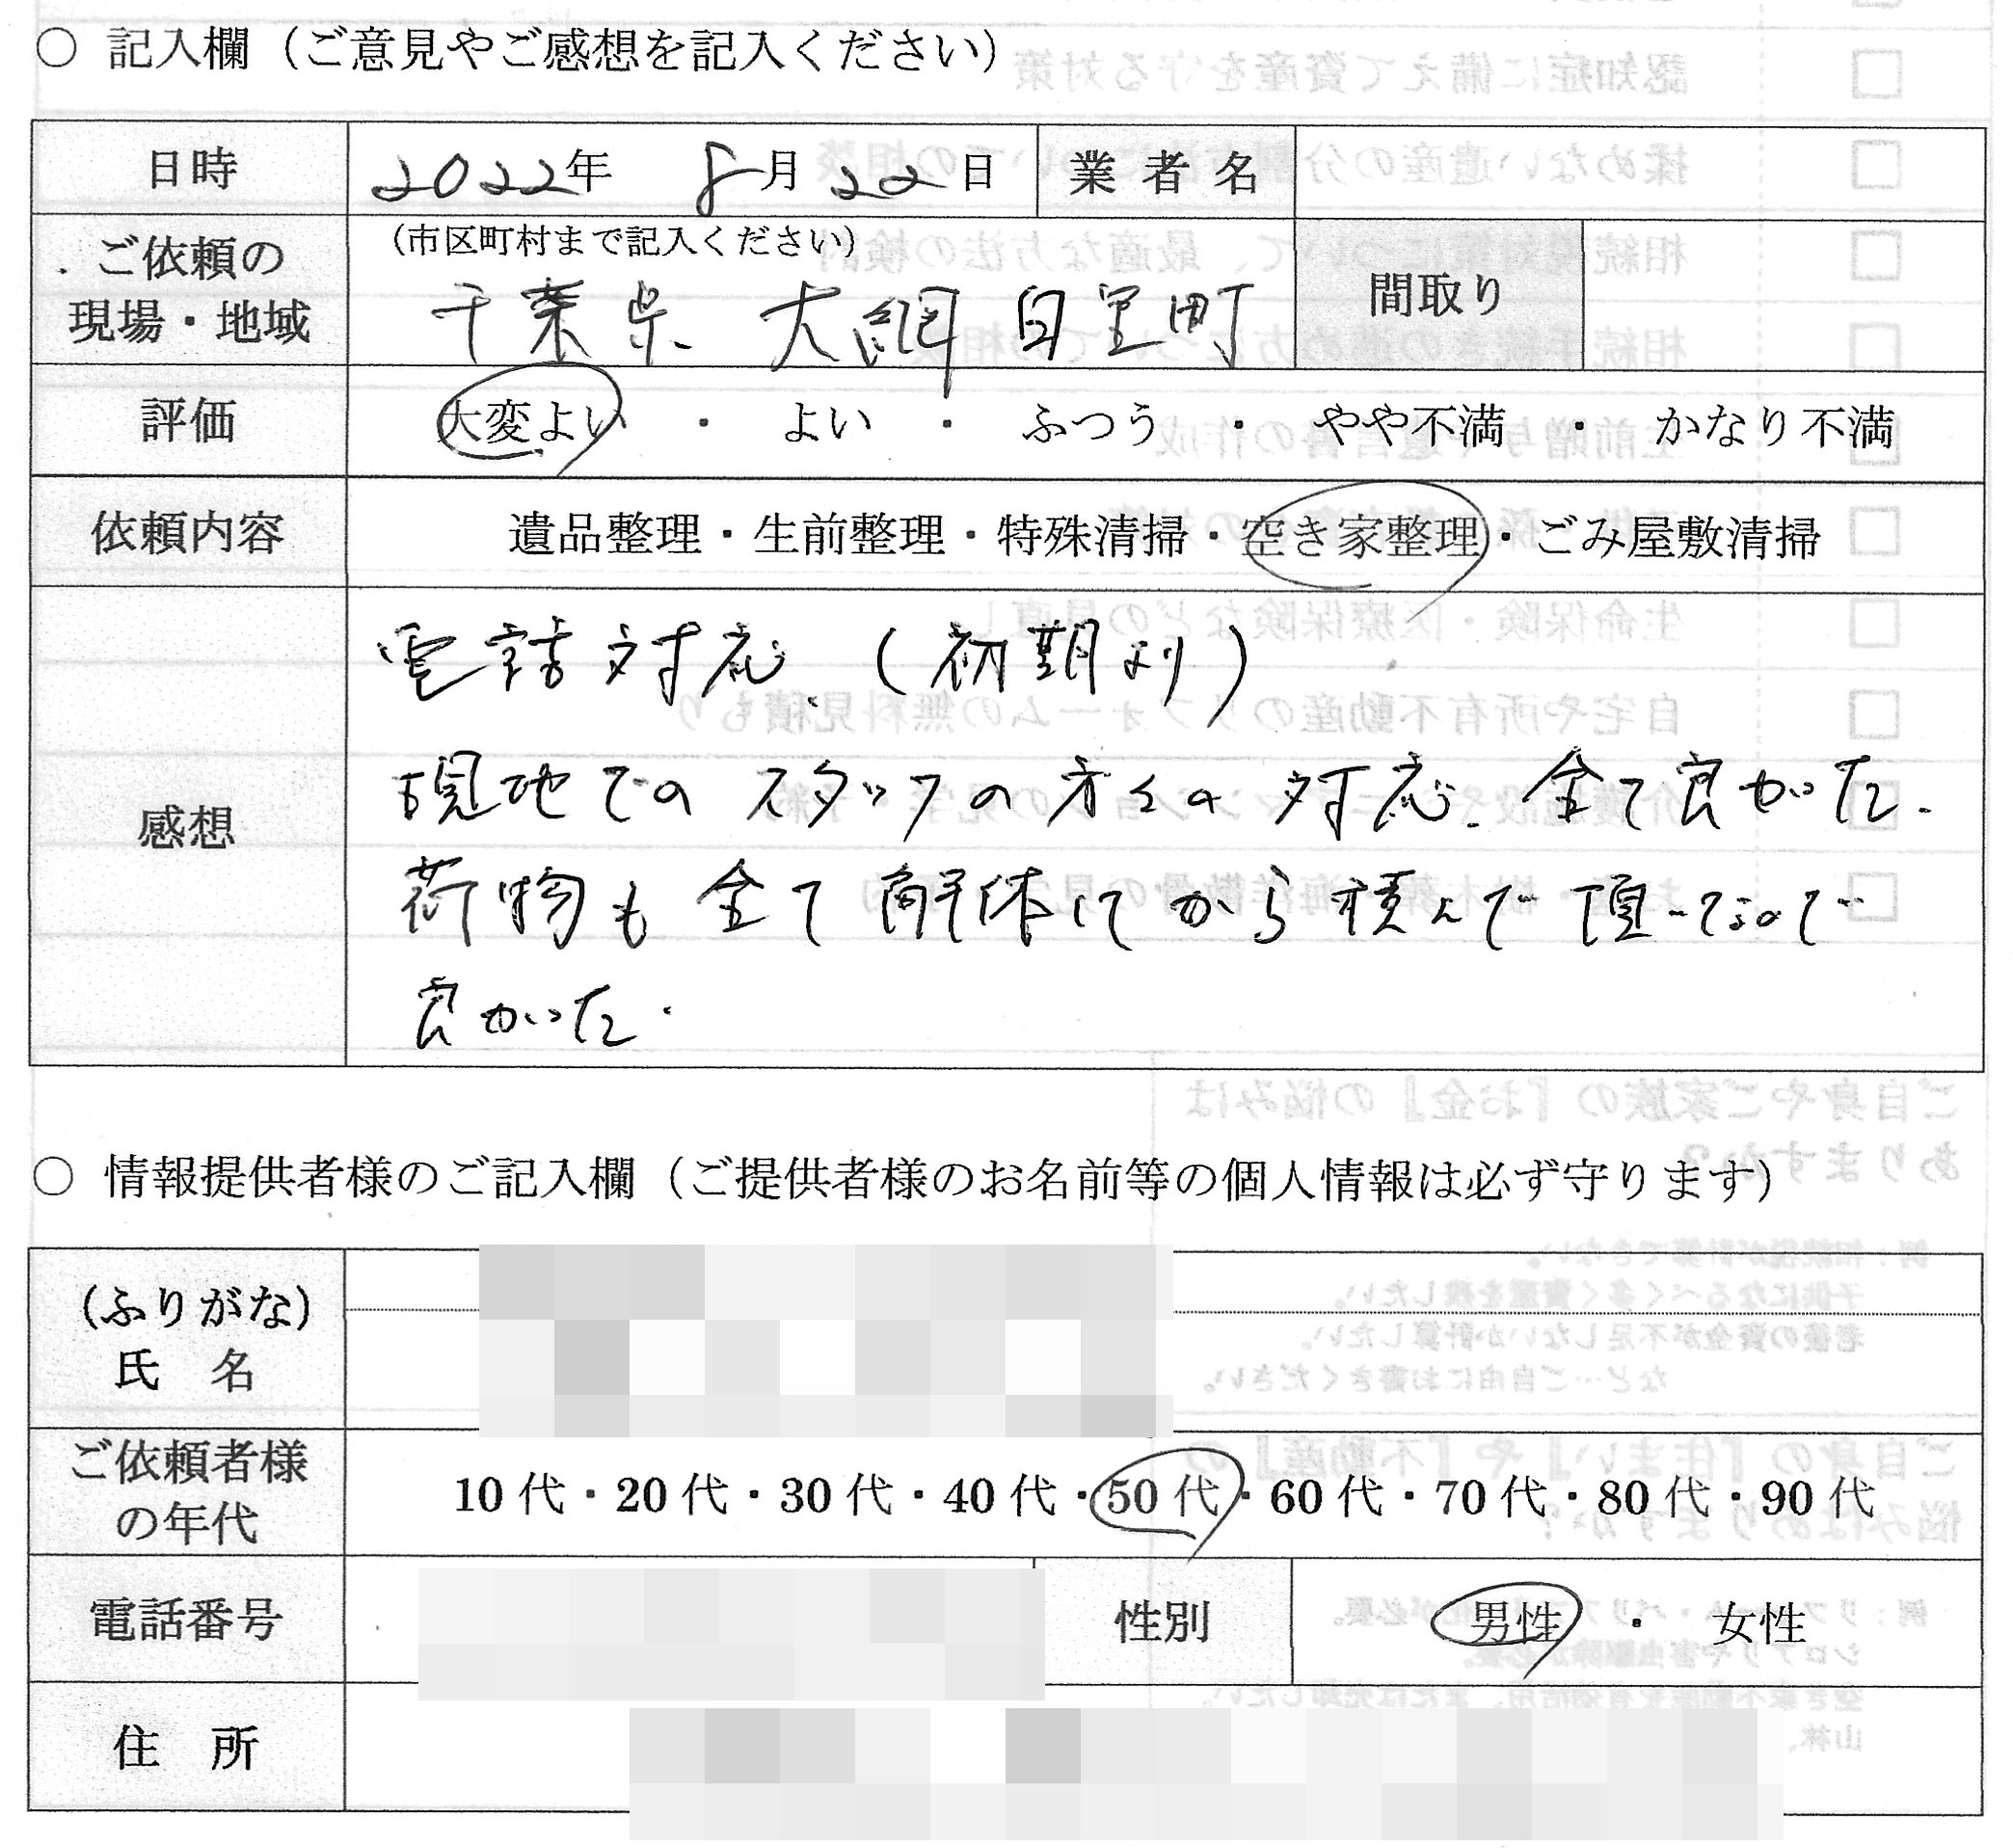 ○ 記入欄（ご意見やご感想を記入ください）
日時 2022年 8月 22日 業者名
ご依頼の現場・地域 （市区町村まで記入ください） 間取り
千葉県 大網白里町
評価 大変よい ・ よい ・ ふつう ・ やや不満 ・ かなり不満
依頼内容 遺品整理・生前整理・特殊清掃・空き家整理・ごみ屋敷清掃
感想
電話対応、（初期より）
現地でのスタッフの方々の対応、全て良かった。
荷物も全て解体してから積んで頂いてるので
良かった。
○ 情報提供者様のご記入欄（ご提供者様のお名前等の個人情報は必ず守ります）
（ふりがな）
氏 名
ご依頼者様の年代 10代・20代・30代・40代・50代・60代・70代・80代・90代
電話番号 性別 男性 ・ 女性
住 所